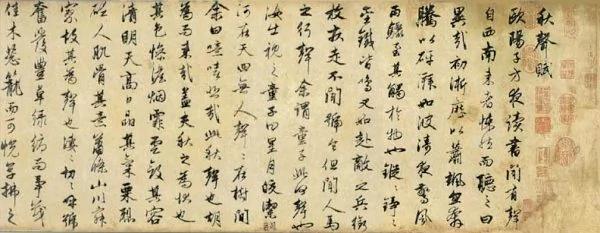 秋聲賦
歐陽子方夜讀書聞有聲
自西南來者悚然而聽之曰
異哉初淅瀝以蕭颯忽奔
騰以砰湃如波濤夜驚風
雨驟至其觸於物也鏦〻錚〻
金鐵皆鳴又如赴敵之兵銜
枚疾走不聞號令但聞人馬
之行聲余謂童子此何聲也
汝出視之童子曰星月皎潔明
河在天四無人聲〻在樹間
余曰噫嘻悲哉此秋聲也胡
為而來哉蓋夫秋之為狀也
其色慘淡煙霏雲斂其容
清明天高日晶其氣栗冽
砭人肌骨其意蕭條山川寂
寥故其為聲也淒〻切〻呼號
奮發豐草綠縟而爭茂
佳木蔥籠而可悅草拂之